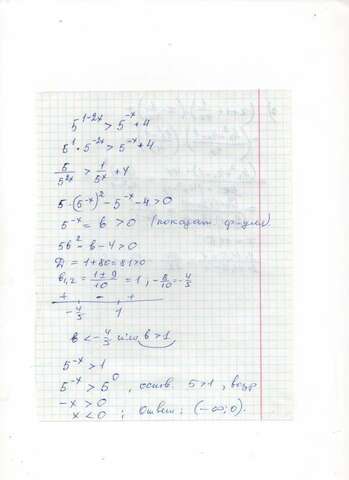 5^{1-2x} > 5^{-x} + 4
5^1 · 5^{-2x} > 5^{-x} + 4
5/5^{2x} > 1/5^x + 4
5·(5^{-x})^2 - 5^{-x} - 4 > 0
5^{-x} = в > 0 (показат. функция)
5в^2 - в - 4 > 0
D = 1 + 80 = 81 > 0
в_{1,2} = (1±9)/10 = 1; -8/10 = -4/5
+ - +
-4/5 1
в < -4/5 или в > 1
5^{-x} > 1
5^{-x} > 5^0, основ. 5 > 1, возр
-x > 0
x < 0; Ответ: (-∞; 0).